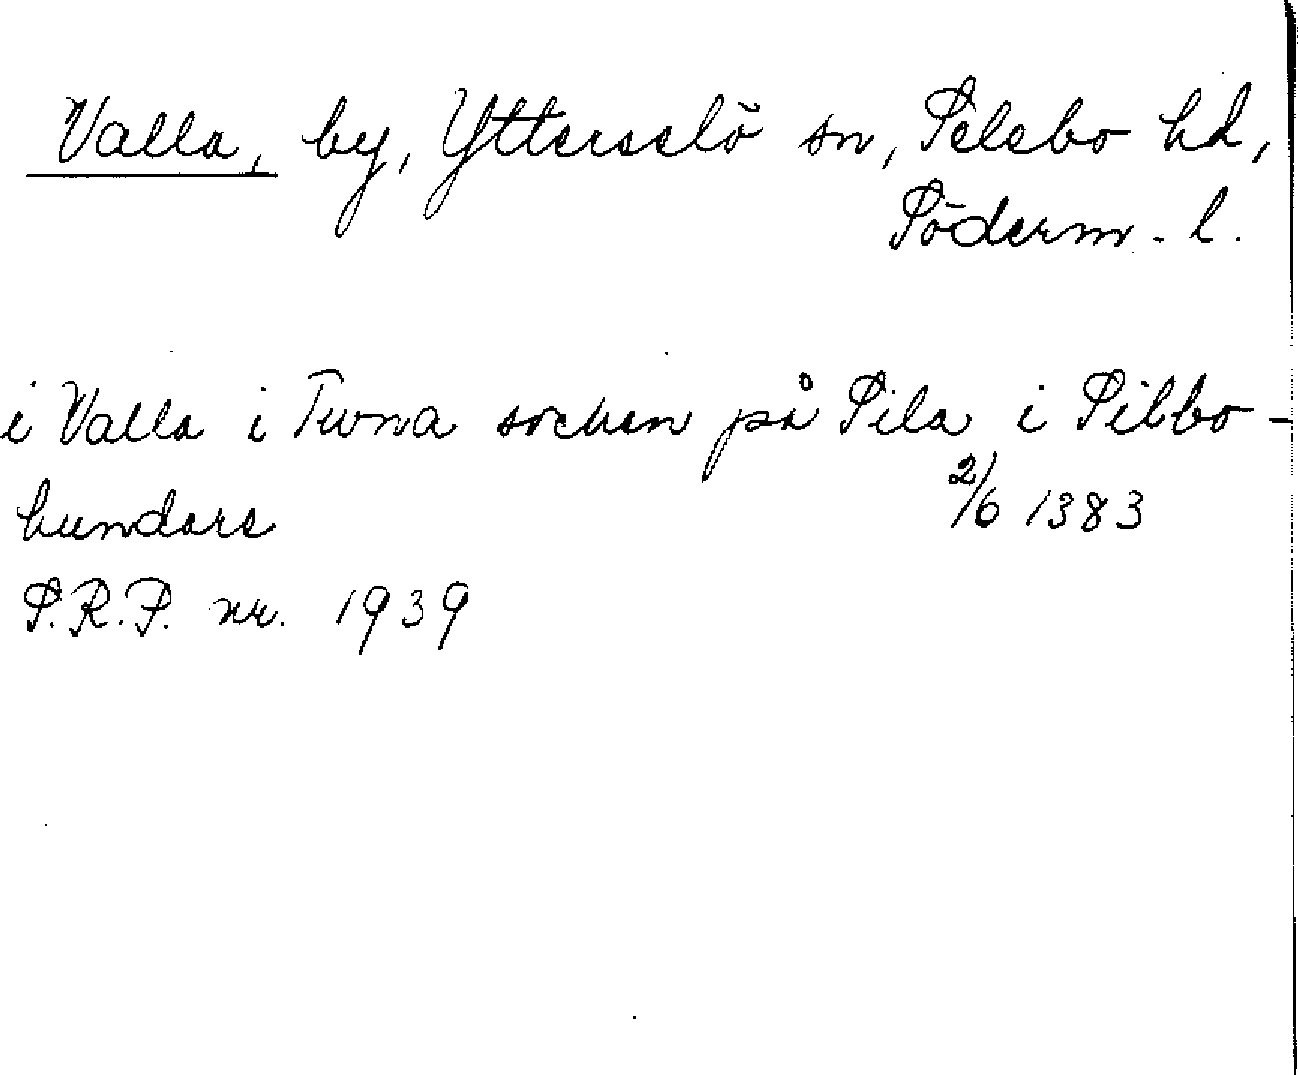 Valla, by, Ytterselö sn, Selebo hd,
Söderm. l.
i Valla i Twna sochen på Sila i Silbbo-
hundare 2/6 1383
S.R.P. nr. 1939